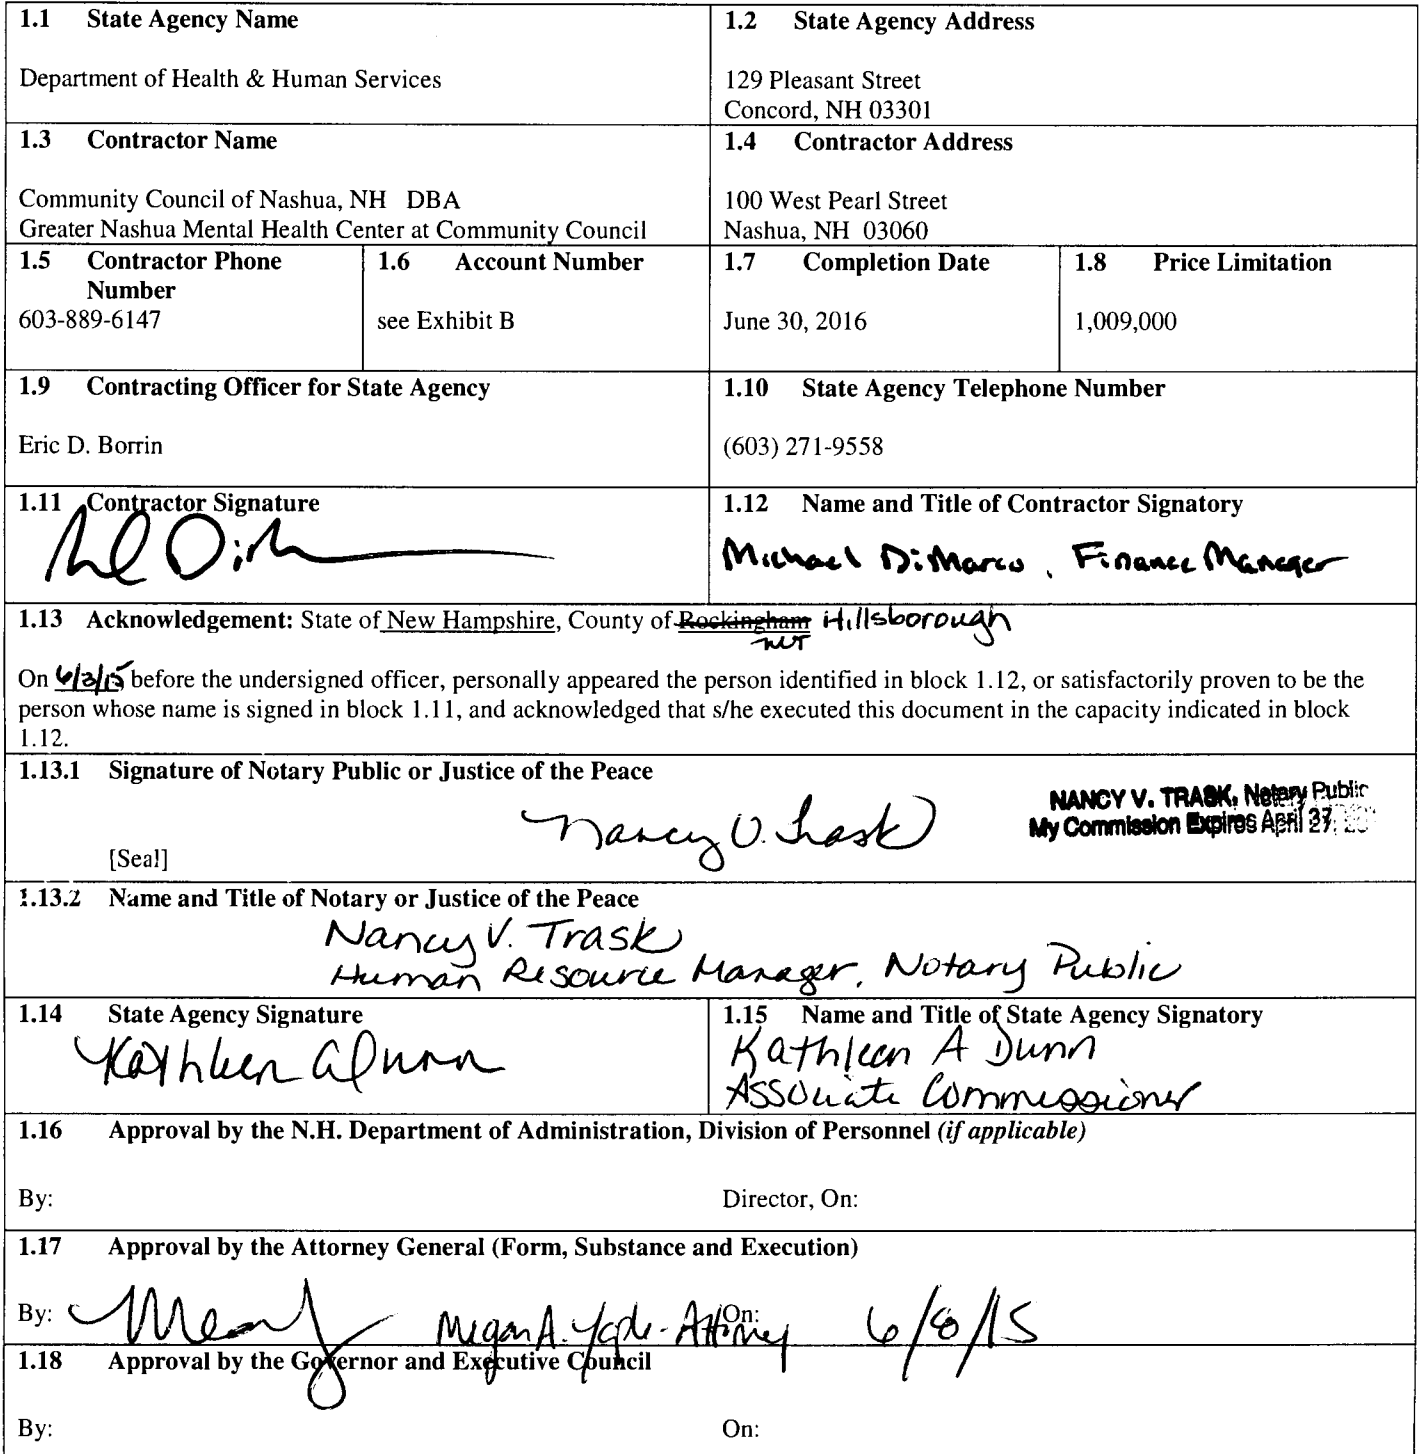 1.1 State Agency Name
1.2 State Agency Address
Department of Health & Human Services
129 Pleasant Street
Concord, NH 03301
1.3 Contractor Name
1.4 Contractor Address
Community Council of Nashua, NH DBA
Greater Nashua Mental Health Center at Community Council
100 West Pearl Street
Nashua, NH 03060
1.5 Contractor Phone
Number
603-889-6147
1.6 Account Number
see Exhibit B
1.7 Completion Date
June 30, 2016
1.8 Price Limitation
1,009,000
1.9 Contracting Officer for State Agency
Eric D. Borrin
1.10 State Agency Telephone Number
(603) 271-9558
1.11 Contractor Signature
1.12 Name and Title of Contractor Signatory
Michael DiMarco, Finance Manager
1.13 Acknowledgement: State of New Hampshire, County of Rockingham Hillsborough
NVT
On 6/3/15, before the undersigned officer, personally appeared the person identified in block 1.12, or satisfactorily proven to be the
person whose name is signed in block 1.11, and acknowledged that s/he executed this document in the capacity indicated in block
1.12.
1.13.1 Signature of Notary Public or Justice of the Peace
Nancy V. Trask
NANCY V. TRASK, Notary Public
My Commission Expires April 27,
[Seal]
1.13.2 Name and Title of Notary or Justice of the Peace
Nancy V. Trask
Human Resource Manager, Notary Public
1.14 State Agency Signature
Kathleen A Dunn
1.15 Name and Title of State Agency Signatory
Kathleen A Dunn
Associate Commissioner
1.16 Approval by the N.H. Department of Administration, Division of Personnel (if applicable)
By:
Director, On:
1.17 Approval by the Attorney General (Form, Substance and Execution)
By: Megan A. - Attorney On: 6/8/15
1.18 Approval by the Governor and Executive Council
By:
On: